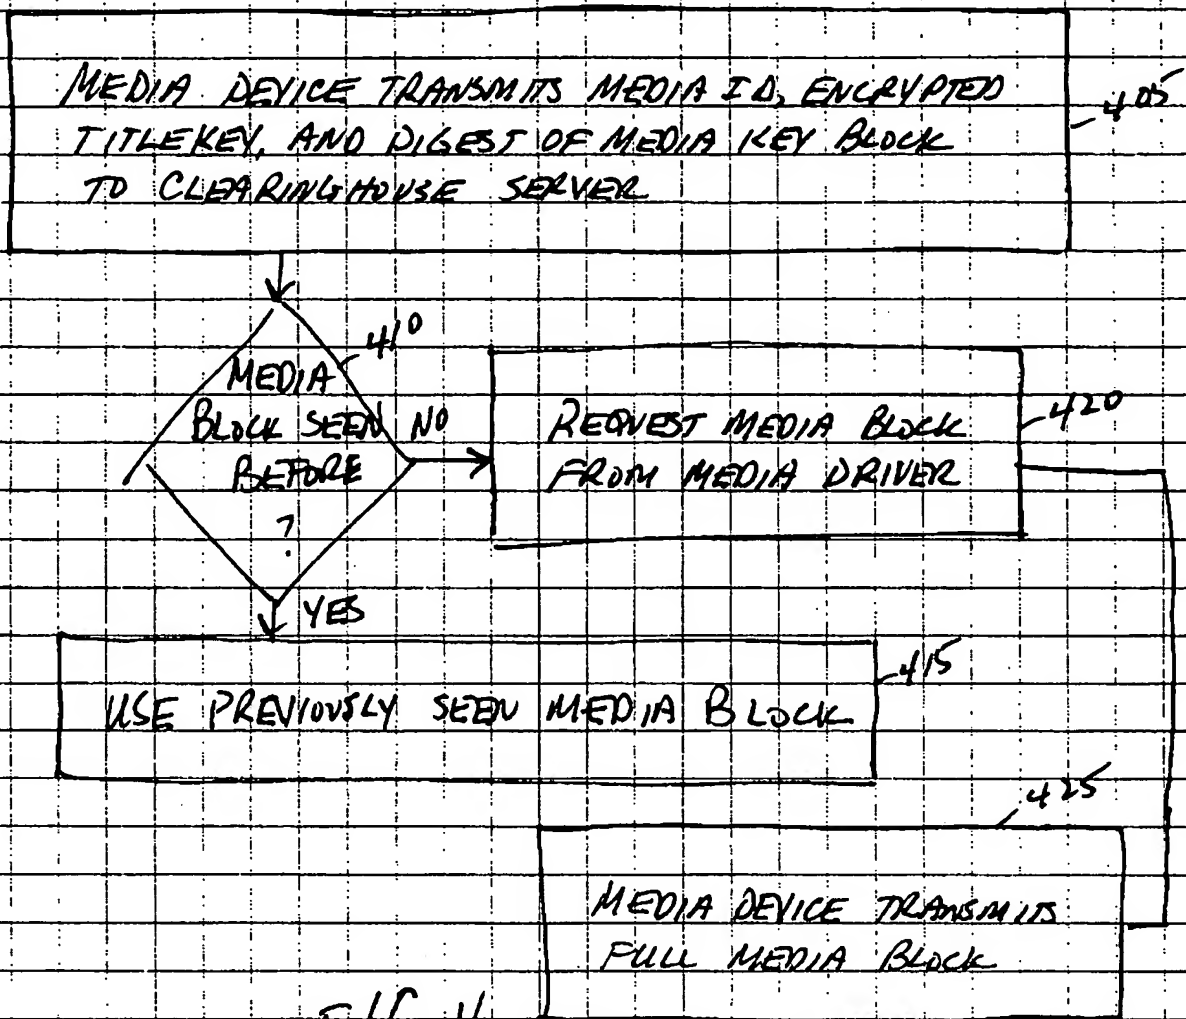 MEDIA DEVICE TRANSMITS MEDIA ID, ENCRYPTED
TITLEKEY, AND DIGEST OF MEDIA KEY BLOCK
TO CLEARINGHOUSE SERVER
405
410
MEDIA
BLOCK SEEN
BEFORE
?
NO
REQUEST MEDIA BLOCK
FROM MEDIA DRIVER
420
YES
USE PREVIOUSLY SEEN MEDIA BLOCK
415
425
MEDIA DEVICE TRANSMITS
FULL MEDIA BLOCK